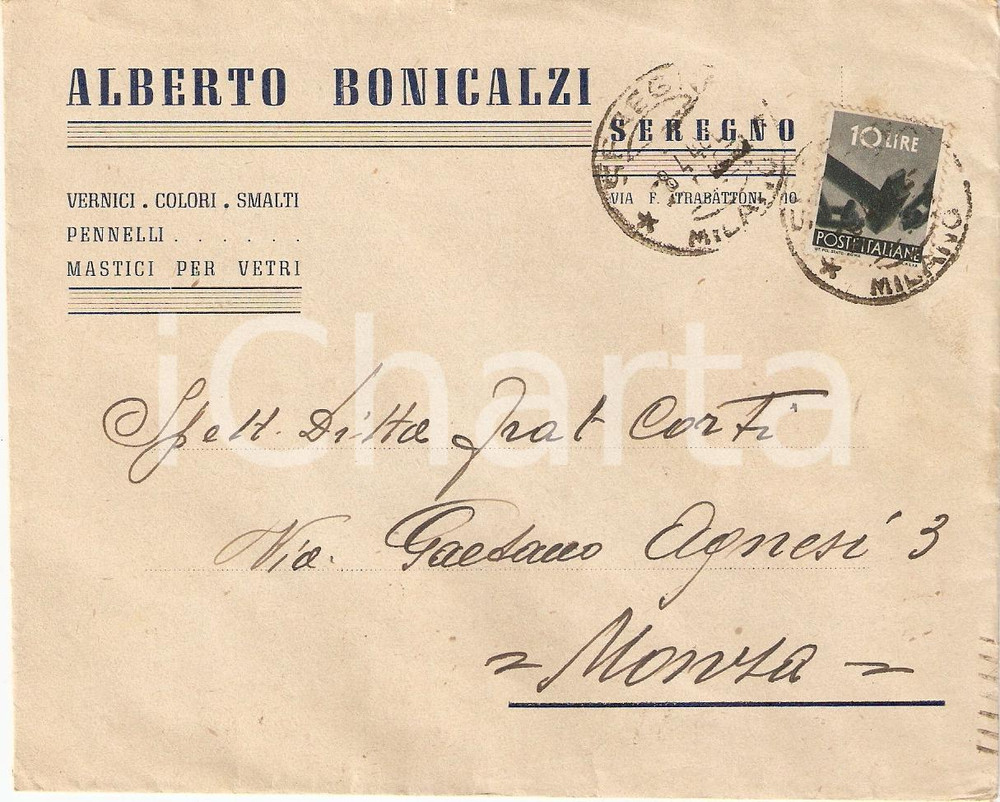 ALBERTO BONICALZI
SEREGNO
VIA F. TRABATTONI, 10
VERNICI . COLORI . SMALTI
PENNELLI . . . . . . .
MASTICI PER VETRI
SEREGNO
MILANO
10 LIRE
POSTE ITALIANE
MILANO
iCharta
Spett. Ditta Frat Corti
Via. Gaetano Agnesi 3
= Monza =